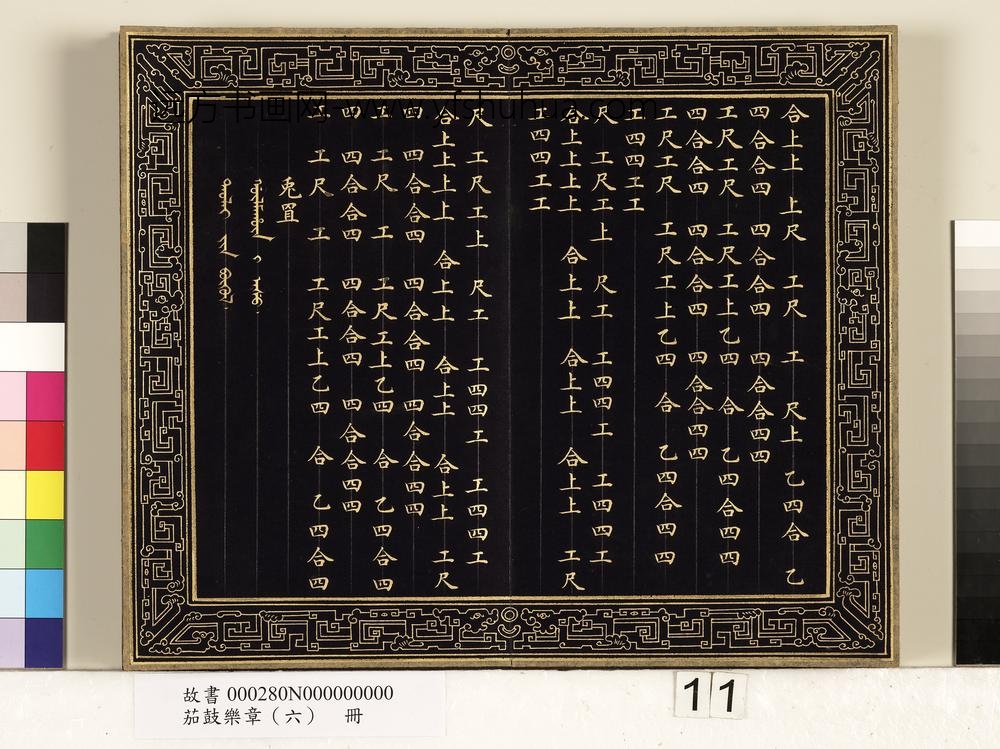 合上上 上尺 工尺 工 尺上 乙四合 乙
四合合四 四合合四 四合合四四
工尺工尺 工尺工上乙四 合 乙四合四四
四合合四 四合合四 四合合四四
工尺工尺 工尺工上乙四 合 乙四合四四
工四四工工
尺 工尺工上 尺工 工四四工 工四四工
合上上上上 合上上 合上上 合上上 工尺
工四四工工
尺 工尺工上 尺工 工四四工 工四四工
合上上上上 合上上 合上上 合上上 工尺
四 四合合四 四合合四 四合合四四
工尺 工 工尺工上乙四 合 乙四合四
四 四合合四 四合合四 四合合四四
工尺 工 工尺工上乙四 合 乙四合四
兔罝
故書 000280N000000000
茄鼓樂章（六） 冊
11
书画网 www.yfshuhua.com